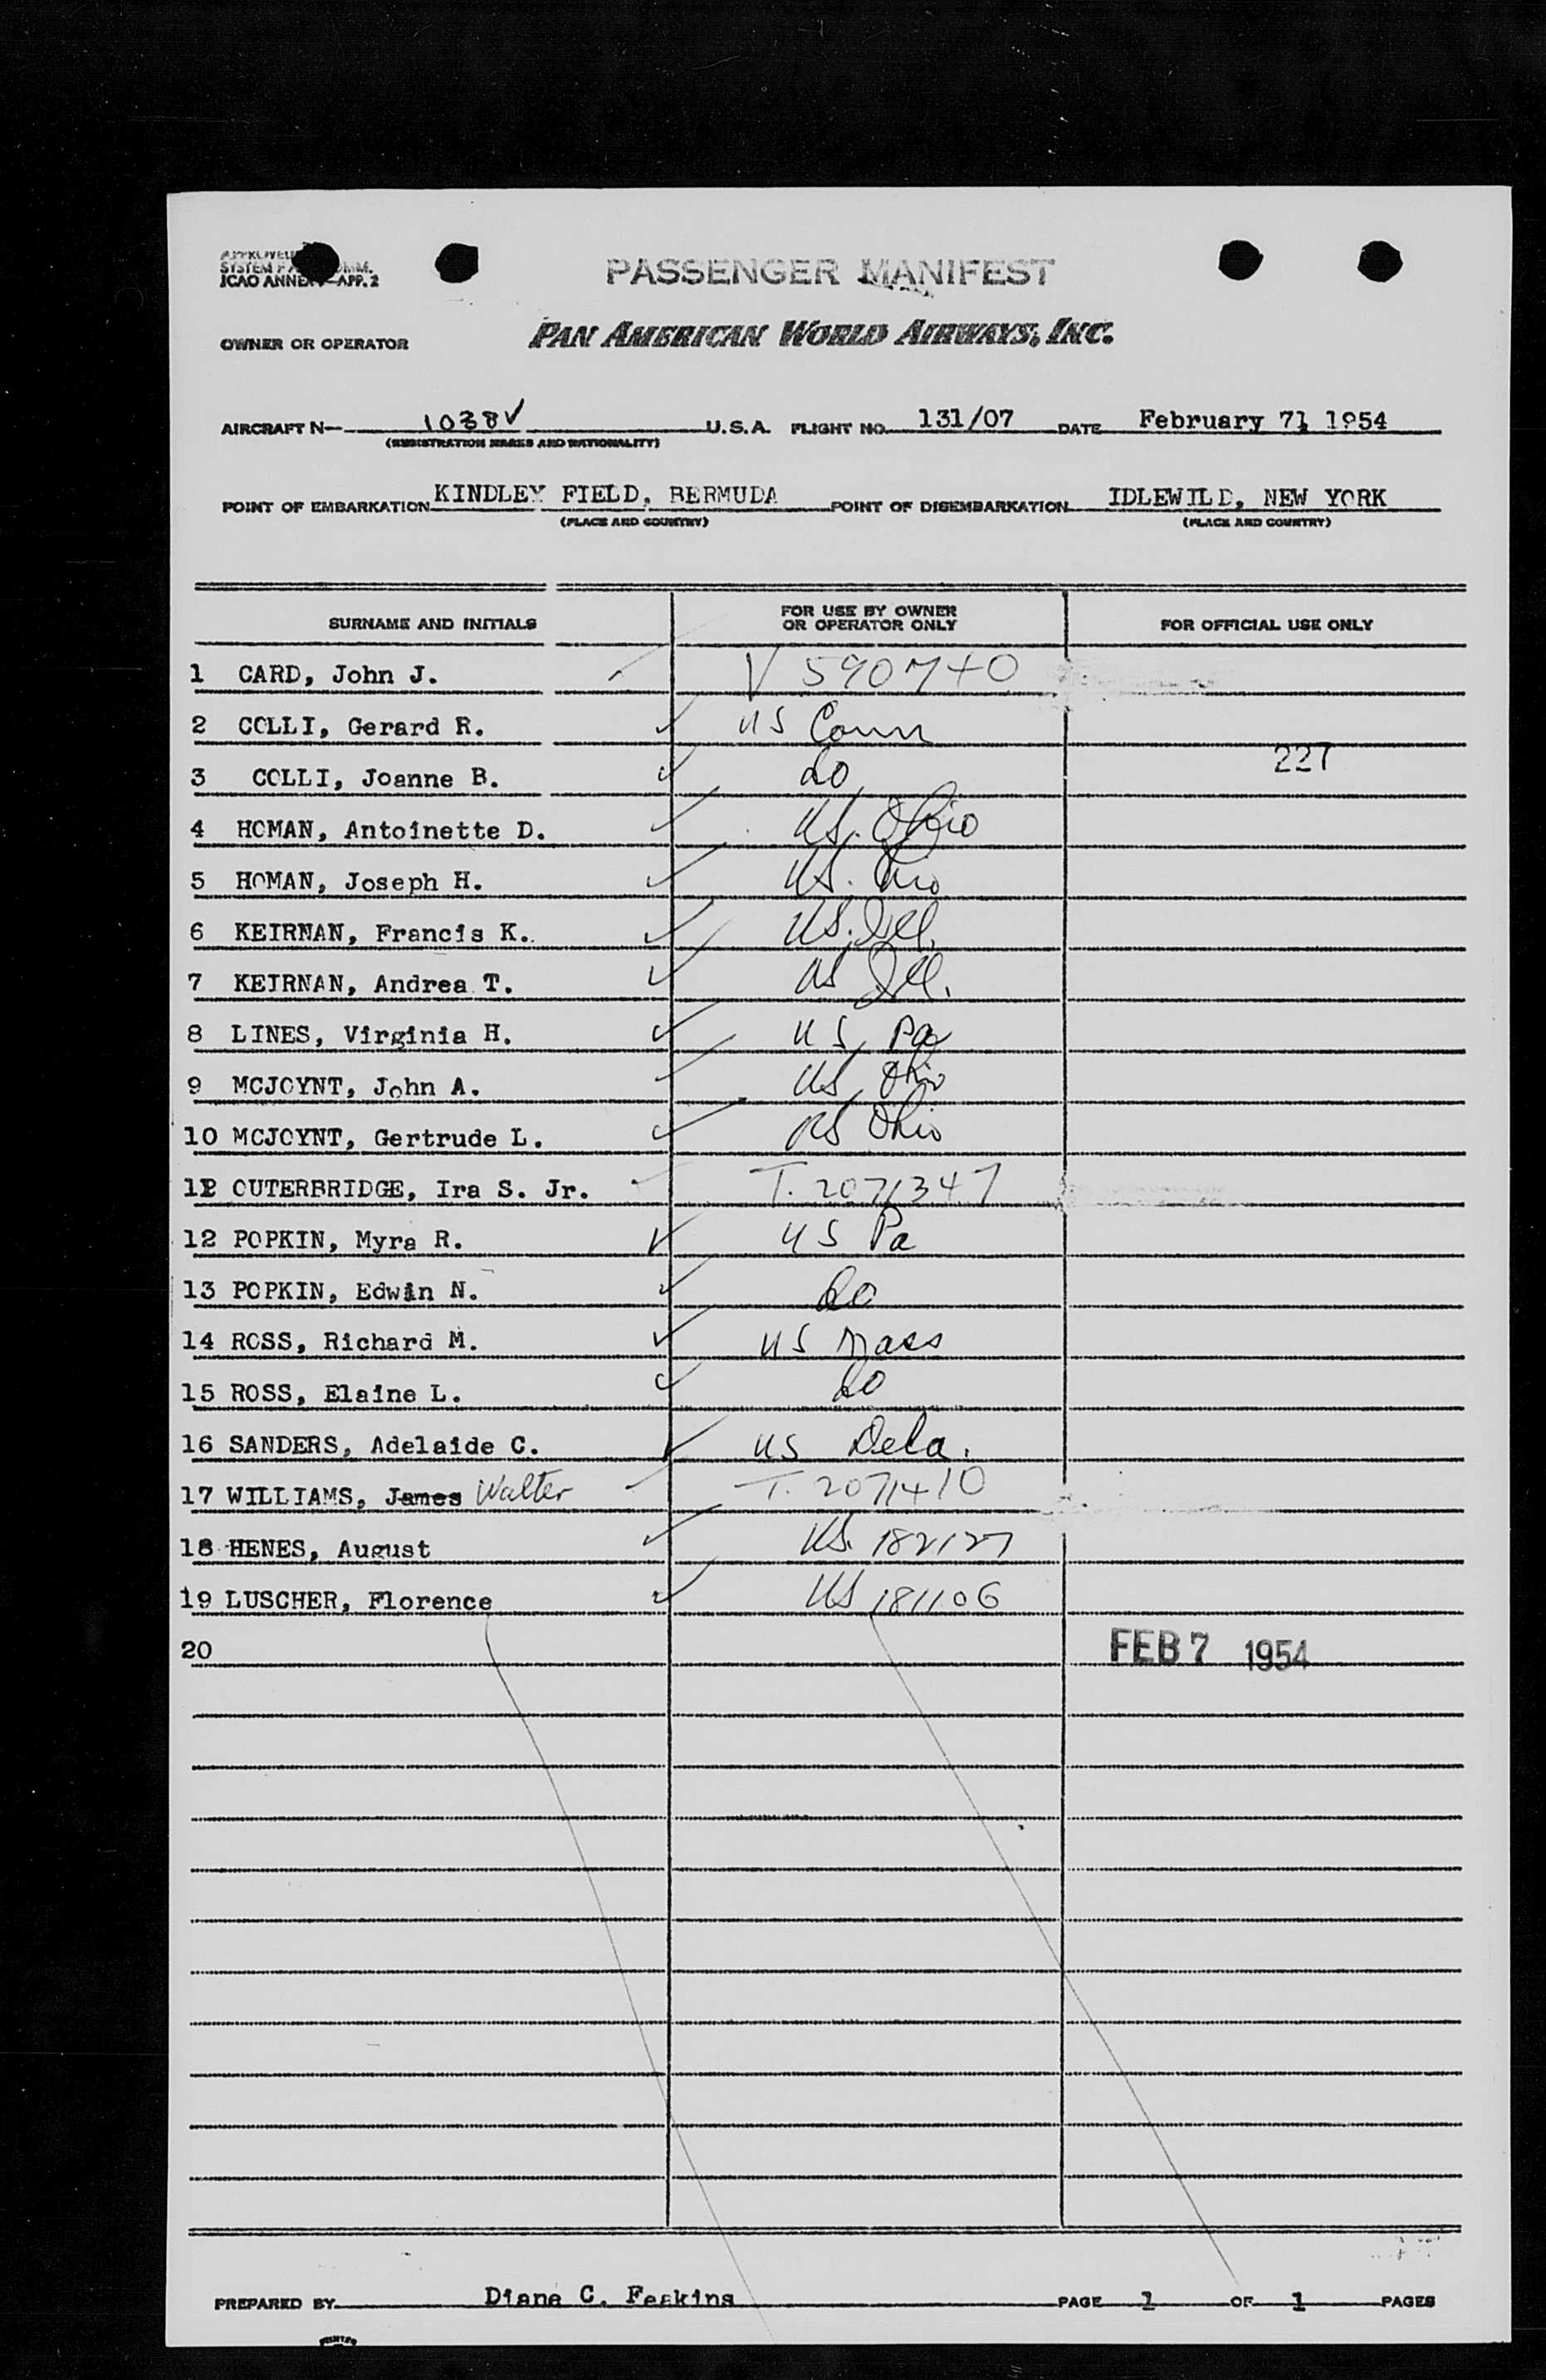 PASSENGER MANIFEST
ICAO ANNEX APP. 2
OWNER OR OPERATOR PAN AMERICAN WORLD AIRWAYS, INC.
AIRCRAFT N— 1038V U.S.A. FLIGHT NO. 131/07 DATE February 7, 1954
(REGISTRATION MARKS AND NATIONALITY)
POINT OF EMBARKATION KINDLEY FIELD, BERMUDA POINT OF DISEMBARKATION IDLEWILD, NEW YORK
(PLACE AND COUNTRY) (PLACE AND COUNTRY)
SURNAME AND INITIALS FOR USE BY OWNER OR OPERATOR ONLY FOR OFFICIAL USE ONLY
1 CARD, John J. V 590740
2 COLLI, Gerard R. US Conn
3 COLLI, Joanne B. do 227
4 HOMAN, Antoinette D. US. Ohio
5 HOMAN, Joseph H. US. Ohio
6 KEIRNAN, Francis K. US. Ill.
7 KEIRNAN, Andrea T. US Ill.
8 LINES, Virginia H. US Pa
9 MCJOYNT, John A. US Ohio
10 MCJOYNT, Gertrude L. US Ohio
11 OUTERBRIDGE, Ira S. Jr. T. 2071347
12 POPKIN, Myra R. US Pa
13 POPKIN, Edwin N. do
14 ROSS, Richard M. US Mass
15 ROSS, Elaine L. do
16 SANDERS, Adelaide C. US Dela.
17 WILLIAMS, James Walter T. 2071410
18 HENES, August US. 182127
19 LUSCHER, Florence US 181106
20 FEB 7 1954
PREPARED BY Diane C. Feakins PAGE 1 OF 1 PAGES